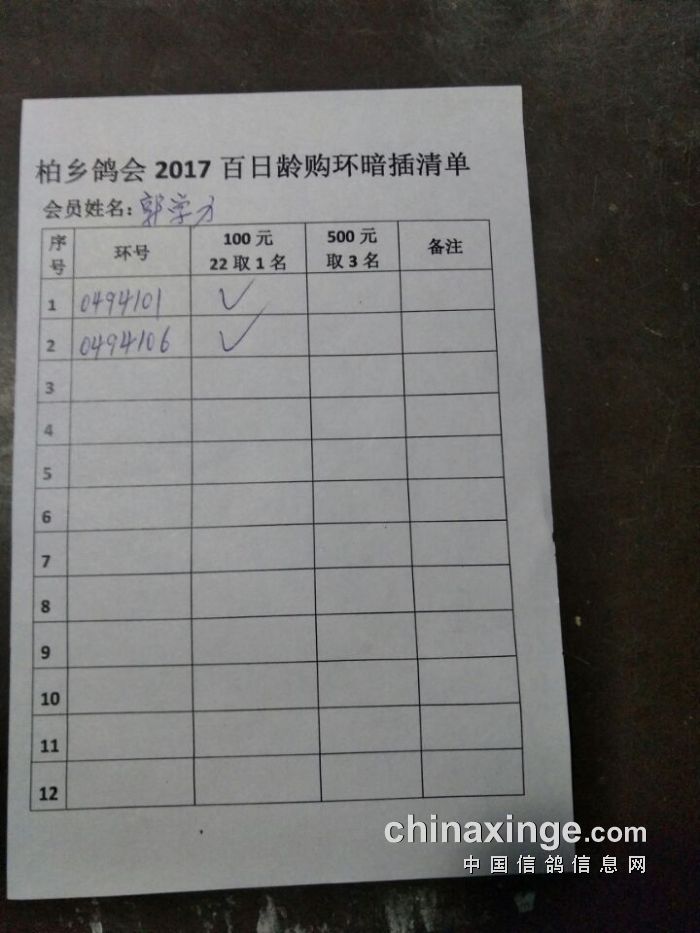 柏乡鸽会 2017 百日龄购环暗插清单
会员姓名：郭学方
序号 环号 100 元 22 取 1 名 500 元 取 3 名 备注
1 0494101 ✓
2 0494106 ✓
3
4
5
6
7
8
9
10
11
12
chinaxinge.com
中国信鸽信息网